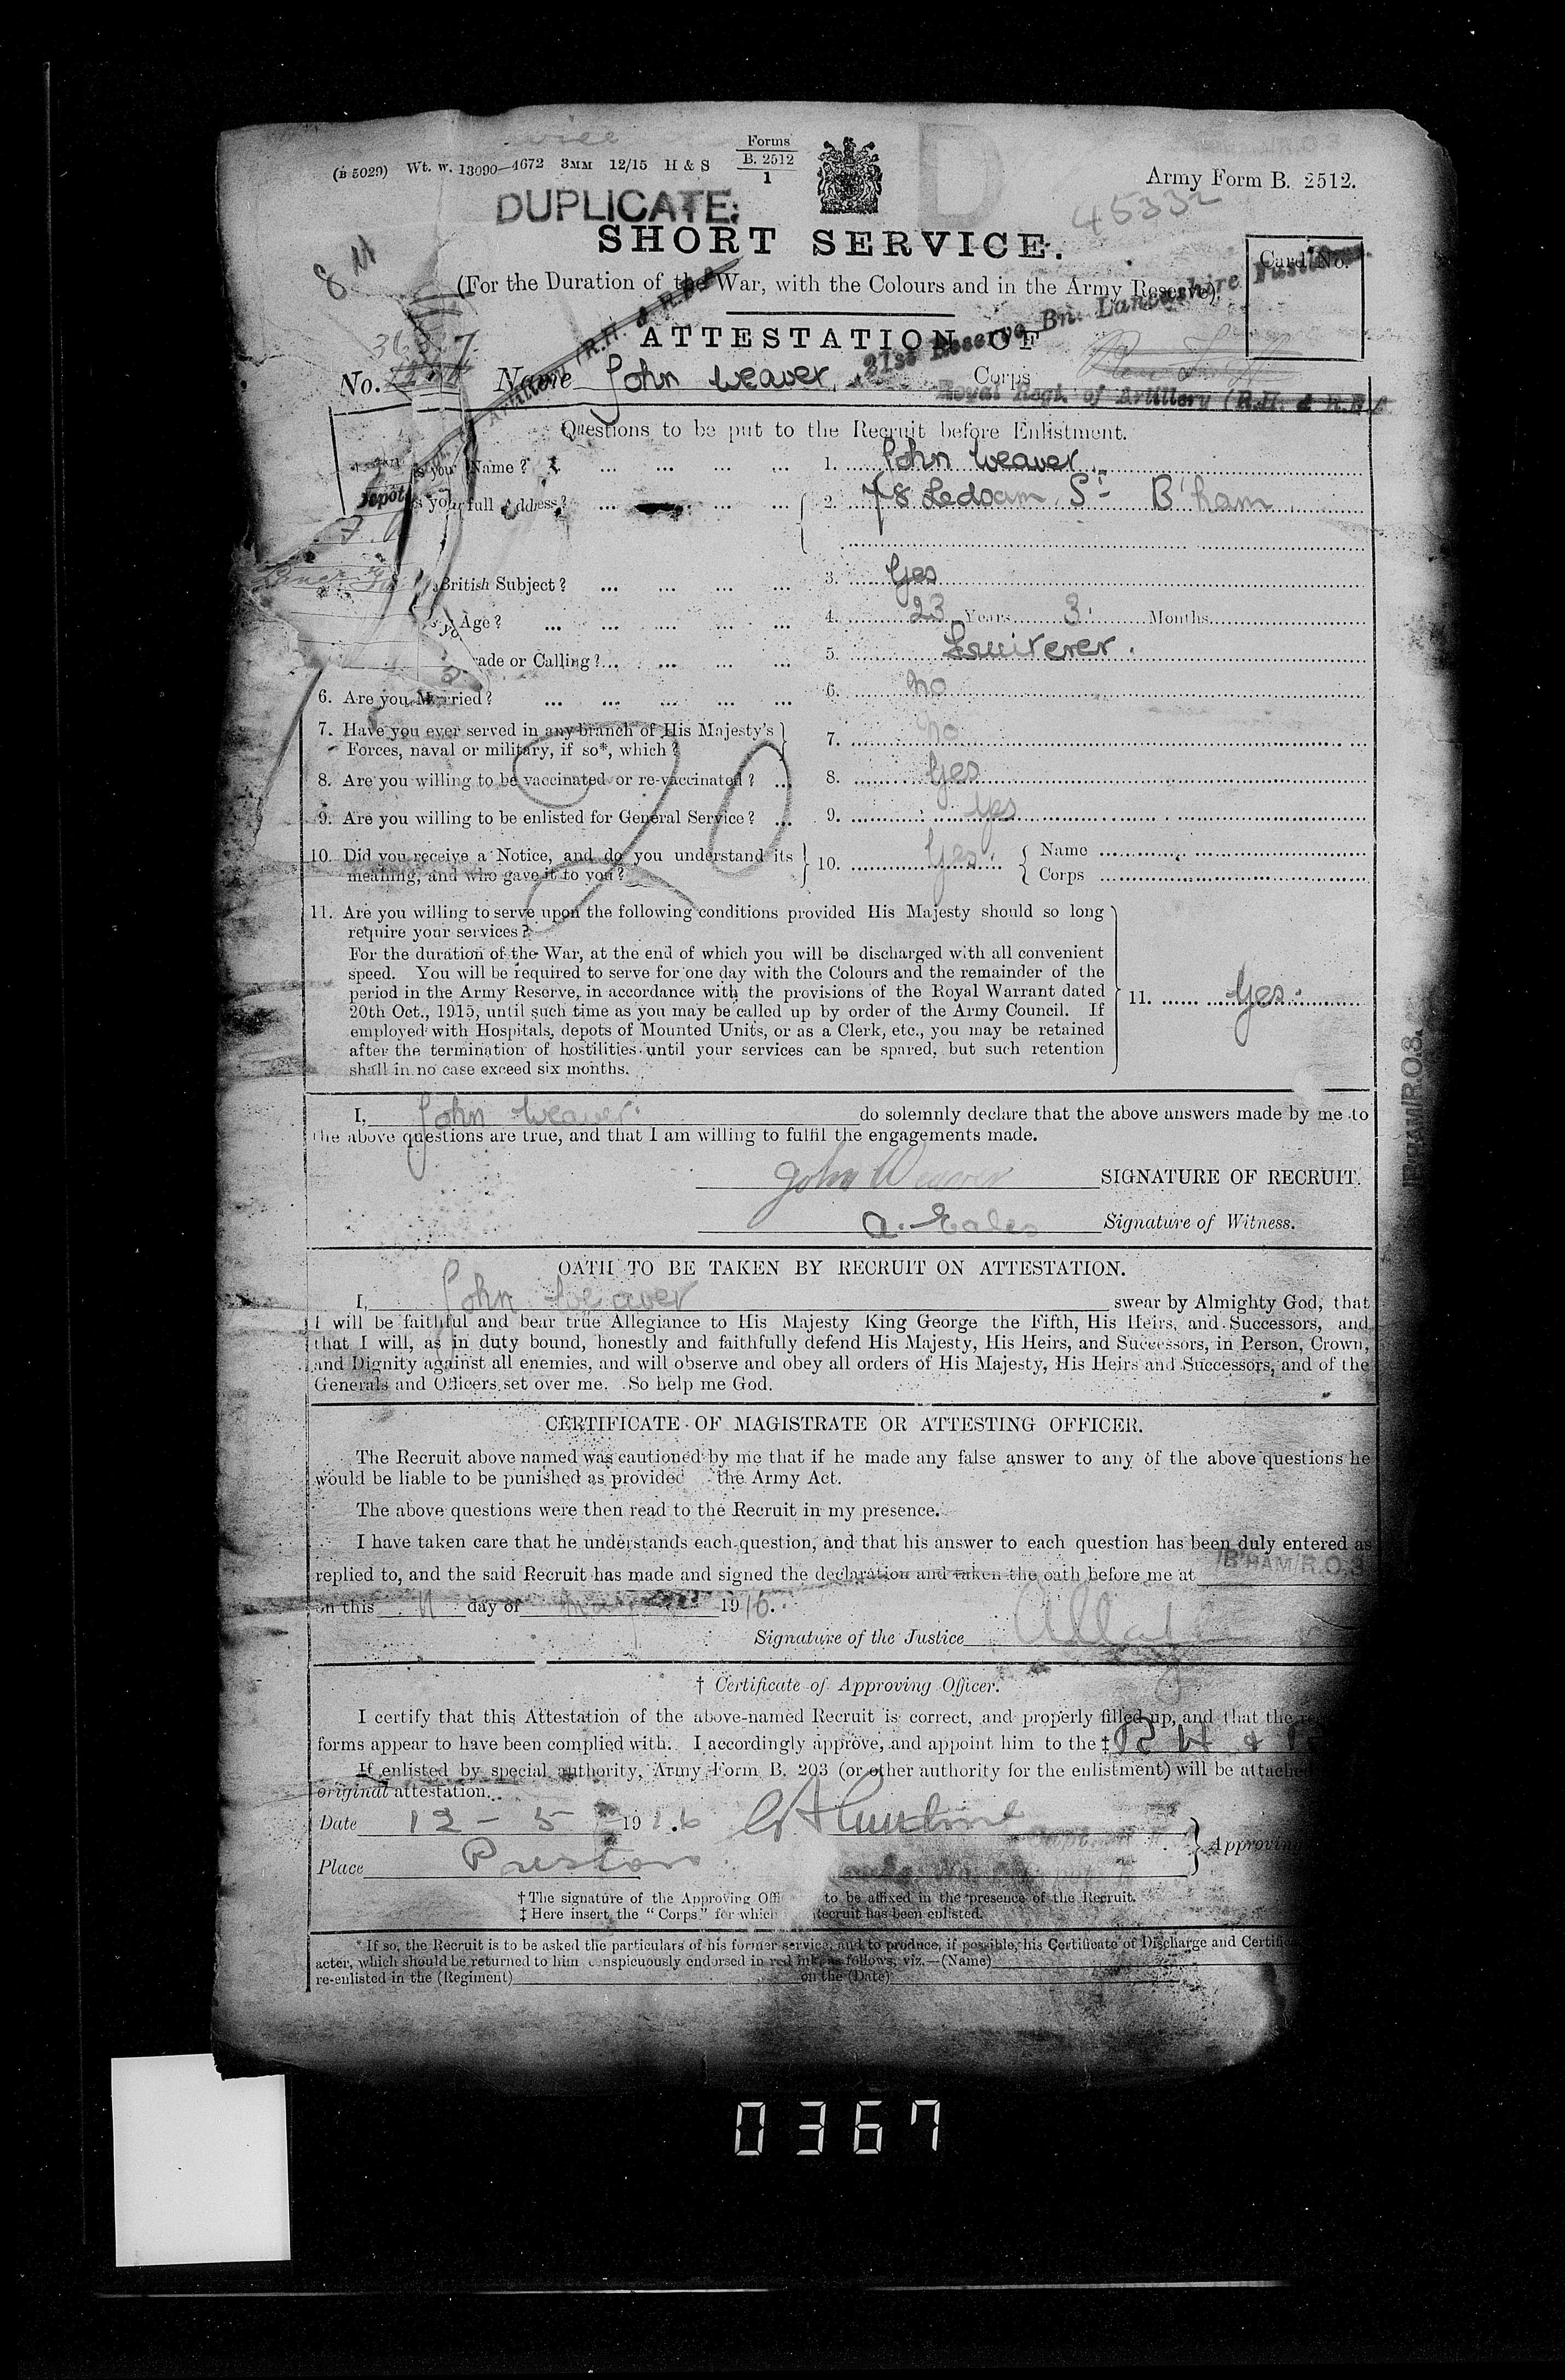 (B 5029) Wt. w. 13090—4672 3MM 12/15 H & S
Forms
B. 2512
1
Army Form B. 2512.
45332
DUPLICATE.
SHORT SERVICE.
Card No.
(For the Duration of the War, with the Colours and in the Army Reserve).
21st Reserve Bn. Lancashire Fusiliers.
ATTESTATION OF
No. Name John Weaver, Corps
Royal Regt. of Artillery (R.H. & R.F.A.
Questions to be put to the Recruit before Enlistment.
is your Name? ... ... ... ... 1. John Weaver
Depot
is your full Address? ... ... ... 2. 78 Ledsam St B'ham
British Subject? ... ... ... ... 3. Yes
Age? ... ... ... ... ... 4. 23 Years 3 Months
rade or Calling? ... ... ... ... 5.
6. Are you Married? ... ... ... ... ... 6. No
7. Have you ever served in any branch of His Majesty's
Forces, naval or military, if so*, which? 7. No
8. Are you willing to be vaccinated or re-vaccinated? ... 8. Yes
9. Are you willing to be enlisted for General Service? ... 9. Yes
10. Did you receive a Notice, and do you understand its
meaning, and who gave it to you? 10. Yes. Name
Corps
11. Are you willing to serve upon the following conditions provided His Majesty should so long
require your services?
For the duration of the War, at the end of which you will be discharged with all convenient
speed. You will be required to serve for one day with the Colours and the remainder of the
period in the Army Reserve, in accordance with the provisions of the Royal Warrant dated
20th Oct., 1915, until such time as you may be called up by order of the Army Council. If
employed with Hospitals, depots of Mounted Units, or as a Clerk, etc., you may be retained
after the termination of hostilities until your services can be spared, but such retention
shall in no case exceed six months.
11. Yes.
B'HAM/R.O.3.
I, John Weaver do solemnly declare that the above answers made by me to
the above questions are true, and that I am willing to fulfil the engagements made.
John Weaver SIGNATURE OF RECRUIT.
A. Eales Signature of Witness.
OATH TO BE TAKEN BY RECRUIT ON ATTESTATION.
I, John Weaver swear by Almighty God, that
I will be faithful and bear true Allegiance to His Majesty King George the Fifth, His Heirs, and Successors, and
that I will, as in duty bound, honestly and faithfully defend His Majesty, His Heirs, and Successors, in Person, Crown,
and Dignity against all enemies, and will observe and obey all orders of His Majesty, His Heirs and Successors, and of the
Generals and Officers set over me. So help me God.
CERTIFICATE OF MAGISTRATE OR ATTESTING OFFICER.
The Recruit above named was cautioned by me that if he made any false answer to any of the above questions he
would be liable to be punished as provided the Army Act.
The above questions were then read to the Recruit in my presence.
I have taken care that he understands each question, and that his answer to each question has been duly entered as
replied to, and the said Recruit has made and signed the declaration and taken the oath before me at B'HAM/R.O.3
on this 11 day of May 1916.
Signature of the Justice
† Certificate of Approving Officer.
I certify that this Attestation of the above-named Recruit is correct, and properly filled up, and that the
forms appear to have been complied with. I accordingly approve, and appoint him to the ‡ R H &
If enlisted by special authority, Army Form B. 203 (or other authority for the enlistment) will be attached
original attestation.
Date 12 - 5 1916
Approving
Place Preston
† The signature of the Approving Offi to be affixed in the presence of the Recruit.
‡ Here insert the "Corps" for which Recruit has been enlisted.
* If so, the Recruit is to be asked the particulars of his former service, and to produce, if possible, his Certificate of Discharge and Certific
acter, which should be returned to him conspicuously endorsed in red ink, as follows, viz.—(Name)
re-enlisted in the (Regiment) on the (Date)
0367